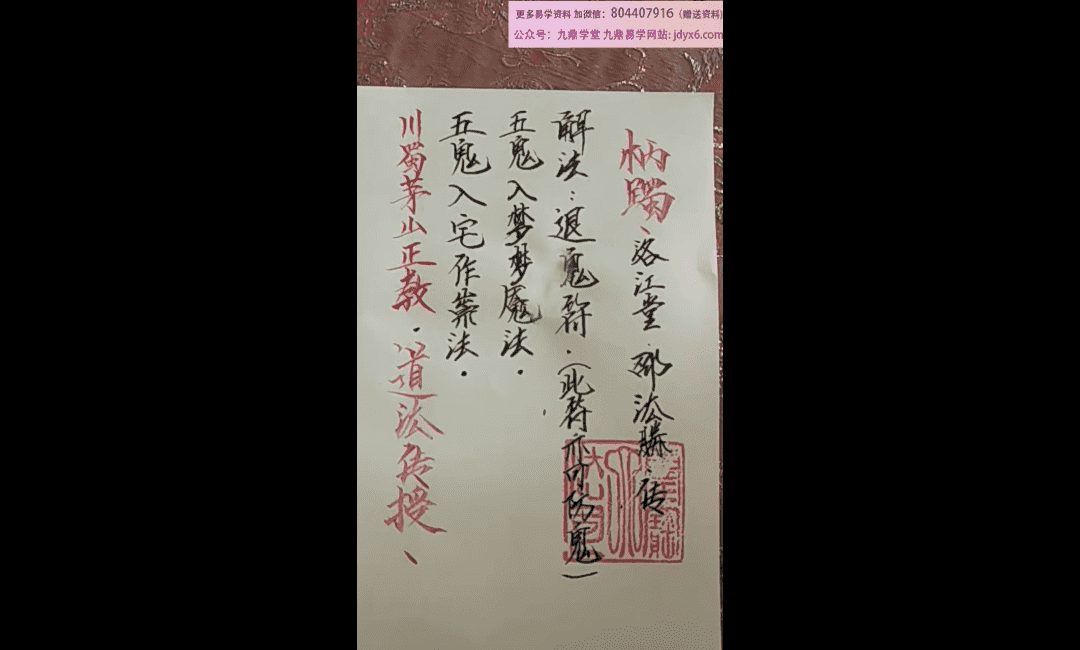 更多易学资料 加微信：804407916（赠送资料）
公众号：九鼎学堂 九鼎易学网站：jdyx6.com
川蜀茅山正教·道法传授、
五鬼入宅作祟法·
五鬼入梦梦魇法·
解法：退鬼符·（此符亦可防鬼）
柄、洛江堂·邵法·传